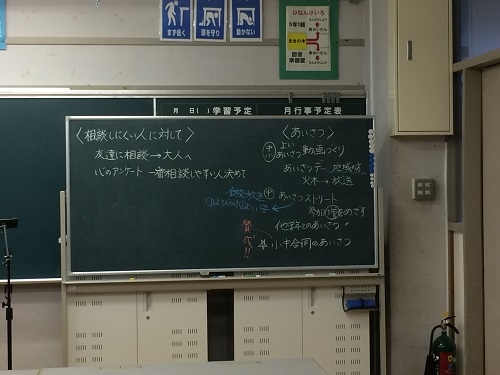 まず低く
頭を守り
動かない
ひなんけいろ
5年1組
図書
準備室
月 日( ) 学習予定
月行事予定表
〈相談しにくい人に対して〉
友達に相談→大人へ
心のアンケート 一番相談しやすい人決めて
〈あいさつ〉
よい
あいさつ動画づくり
あいさつデー、地域の方
火木→放送
あいさつストリート
参加 増をめざす
他学年とのあいさつ
賛成!!
小中合同のあいさつ